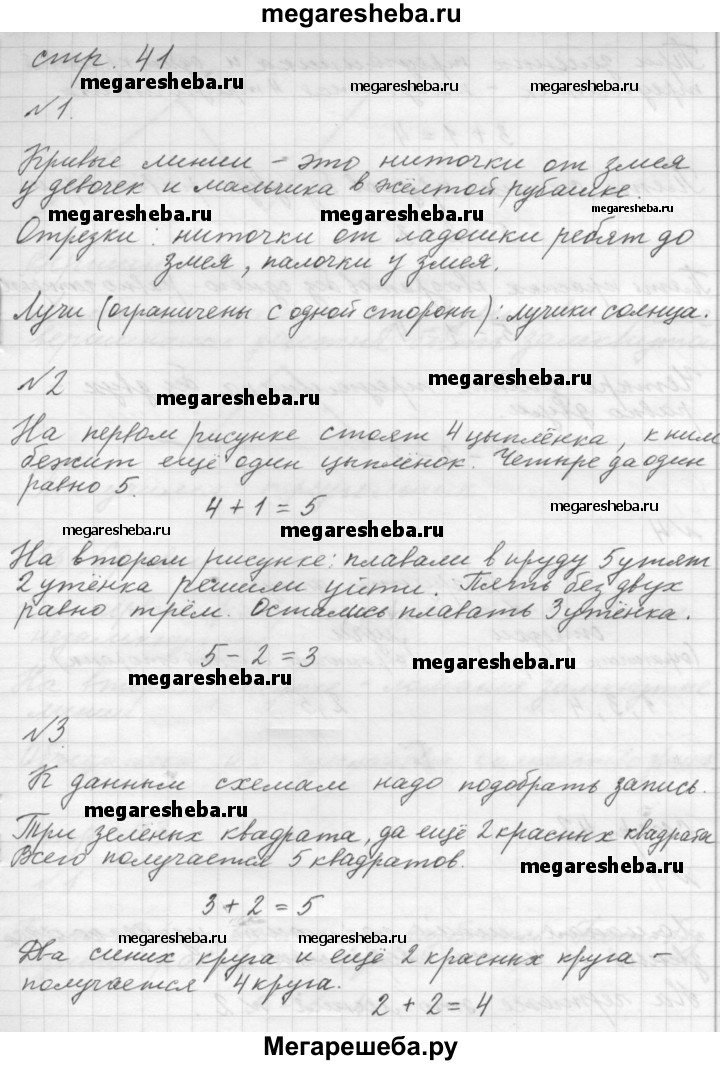 megaresheba.ru
стр. 41
megaresheba.ru megaresheba.ru megaresheba.ru
№1.
Кривые линии – это ниточки от змея
у девочек и мальчика в жёлтой рубашке.
megaresheba.ru megaresheba.ru megaresheba.ru
Отрезки: ниточки от ладошки ребят до
змея, палочки у змея.
Лучи (ограничены с одной стороны): лучики солнца.
№2
megaresheba.ru megaresheba.ru
На первом рисунке стоят 4 цыплёнка, к ним
бежит ещё один цыплёнок. Четыре да один
равно 5.
4 + 1 = 5
megaresheba.ru megaresheba.ru megaresheba.ru
На втором рисунке: плавали в пруду 5 утят
2 утёнка решили уйти. Пять без двух
равно трём. Остались плавать 3 утёнка.
5 – 2 = 3
megaresheba.ru megaresheba.ru
№3
К данным схемам надо подобрать запись.
megaresheba.ru
Три зелёных квадрата, да ещё 2 красных квадрата
Всего получается 5 квадратов.
megaresheba.ru
3 + 2 = 5
megaresheba.ru megaresheba.ru megaresheba.ru
Два синих круга и ещё 2 красных круга –
получается 4 круга.
2 + 2 = 4
Мегарешеба.ру